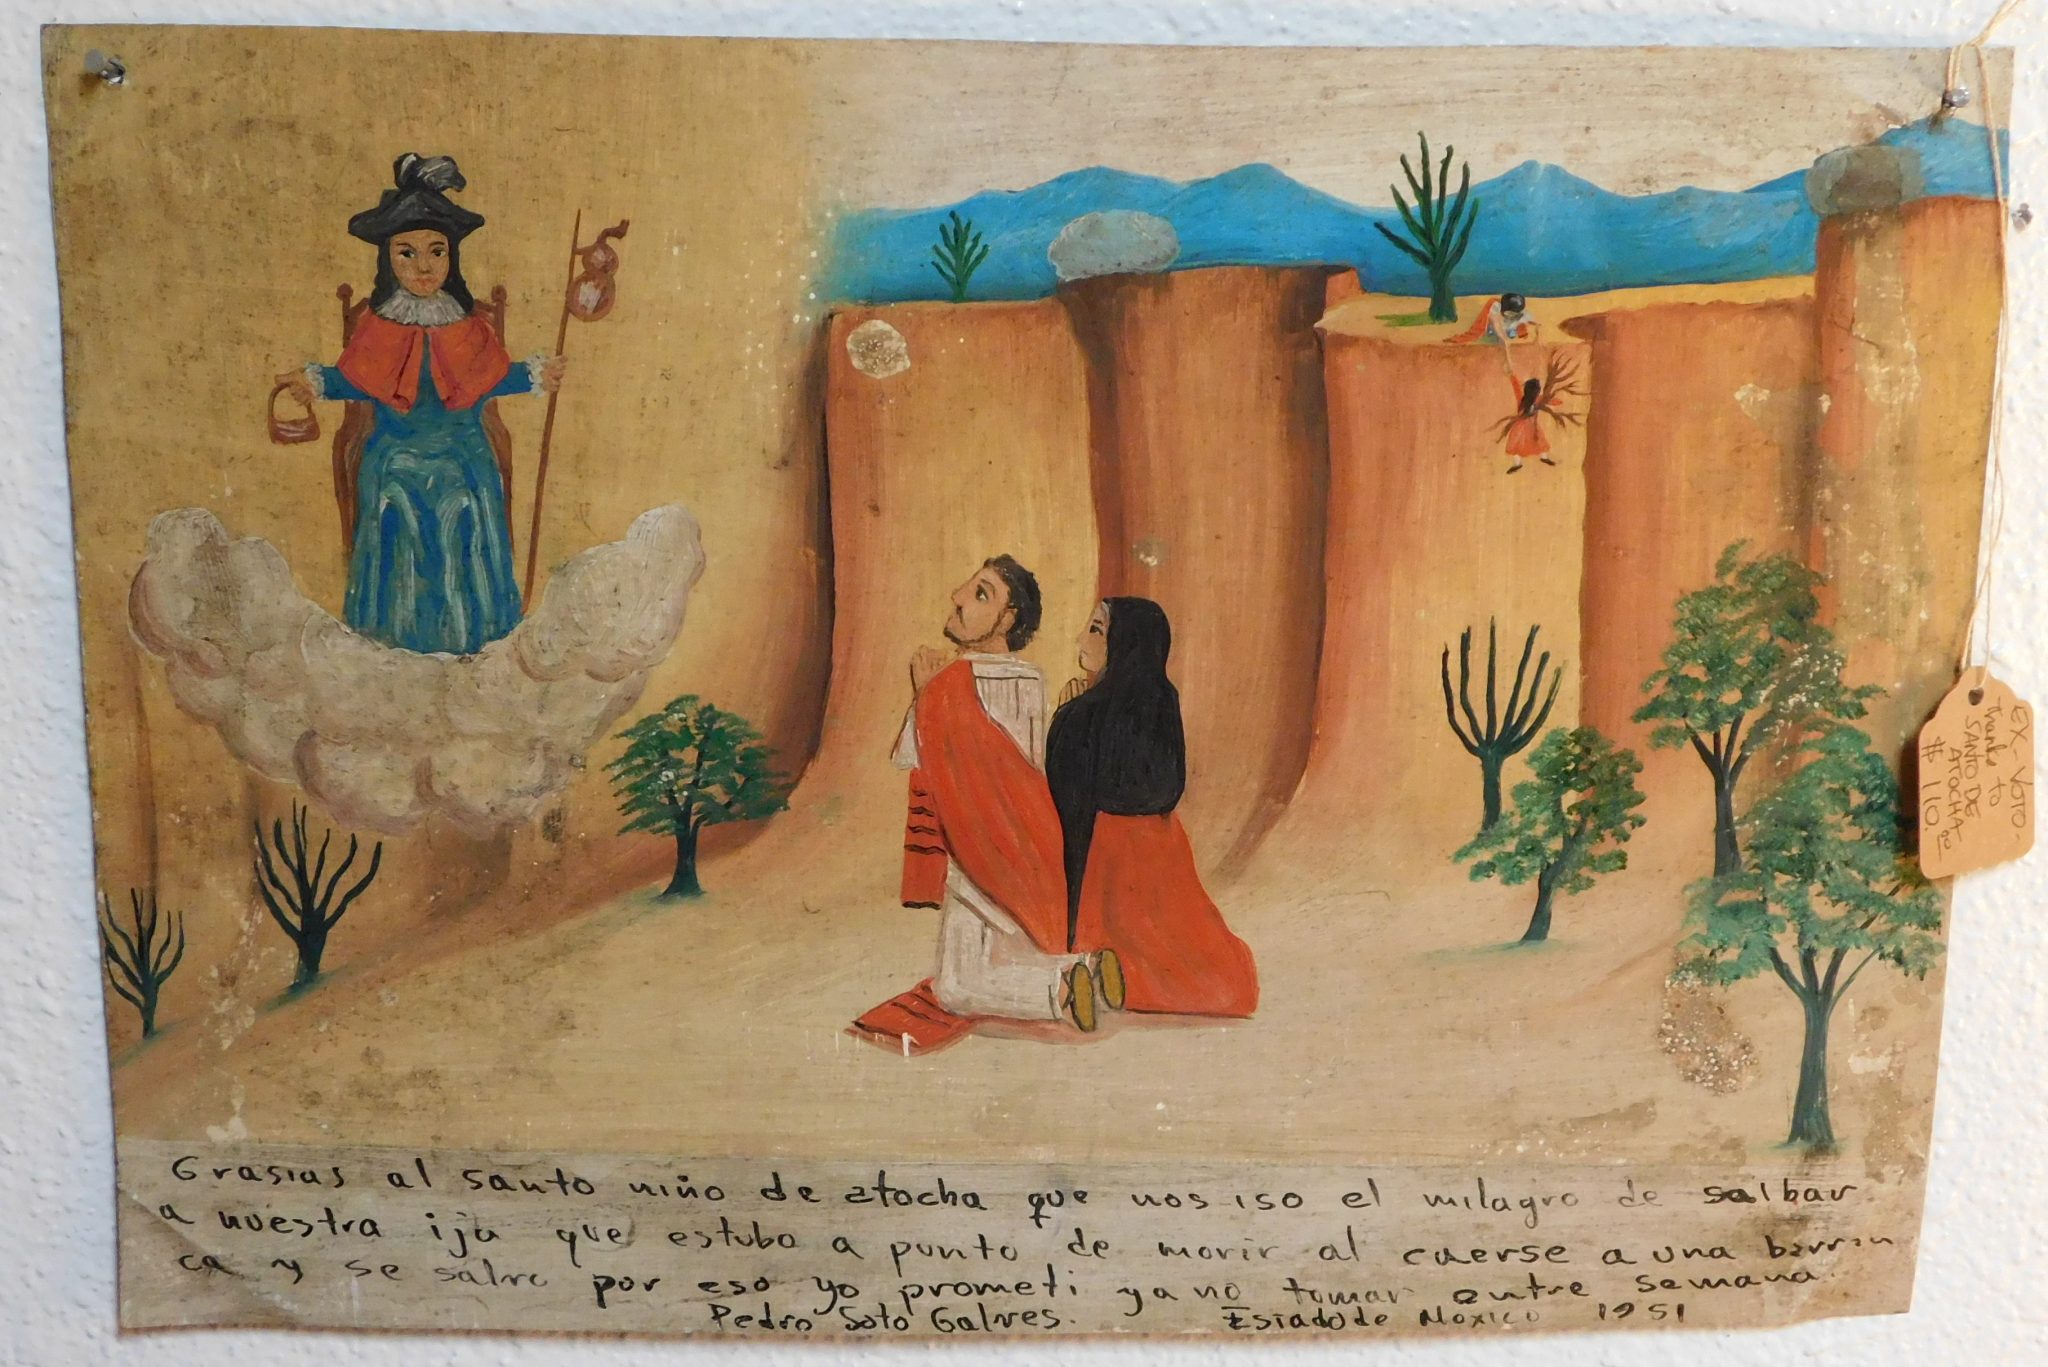 Grasias al santo niño de atocha que nos iso el milagro de salbar
a nuestra ija que estubo a punto de morir al caerse a una barran
ca y se salvo por eso yo prometi ya no tomar entre semana.
Pedro Soto Galves. Estado de Mexico 1951
EX-VOTO-
Thanks to
SANTO DE
ATOCHA
$110.00